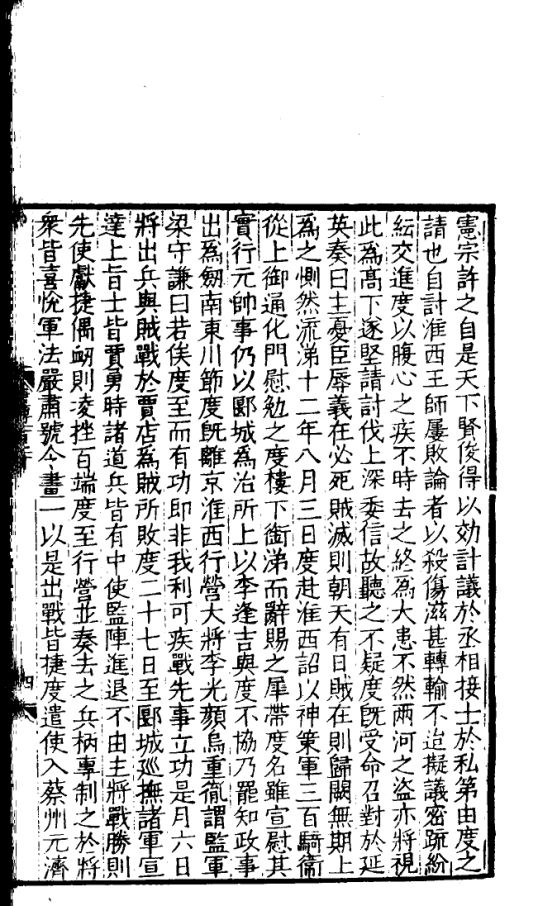 憲宗許之自是天下賢俊得以効計議於丞相接士於私第由度之
請也自討淮西王師屢敗論者以殺傷滋甚轉輸不迨擬議密疏紛
紜交進度以腹心之疾不時去之終爲大患不然兩河之盗亦將視
此爲高下遂堅請討伐上深委信故聽之不疑度旣受命召對於延
英奏曰主憂臣辱義在必死賊滅則朝天有日賊在則歸闕無期上
爲之惻然流涕十二年八月三日度赴淮西詔以神策軍三百騎衞
從上御通化門慰勉之度樓下銜涕而辭賜之犀帶度名雖宣慰其
實行元帥事仍以郾城爲治所上以李逢吉與度不協乃罷知政事
出爲劒南東川節度旣離京淮西行營大將李光顔烏重胤謂監軍
梁守謙曰若俟度至而有功即非我利可疾戰先事立功是月六日
將出兵與賊戰於賈店爲賊所敗度二十七日至郾城巡撫諸軍宣
達上旨士皆賈勇時諸道兵皆有中使監陣進退不由主將戰勝則
先使獻捷偶衂則凌挫百端度至行營並奏去之兵柄專制之於將
衆皆喜悅軍法嚴肅號令畫一以是出戰皆捷度遣使入蔡州元濟
四